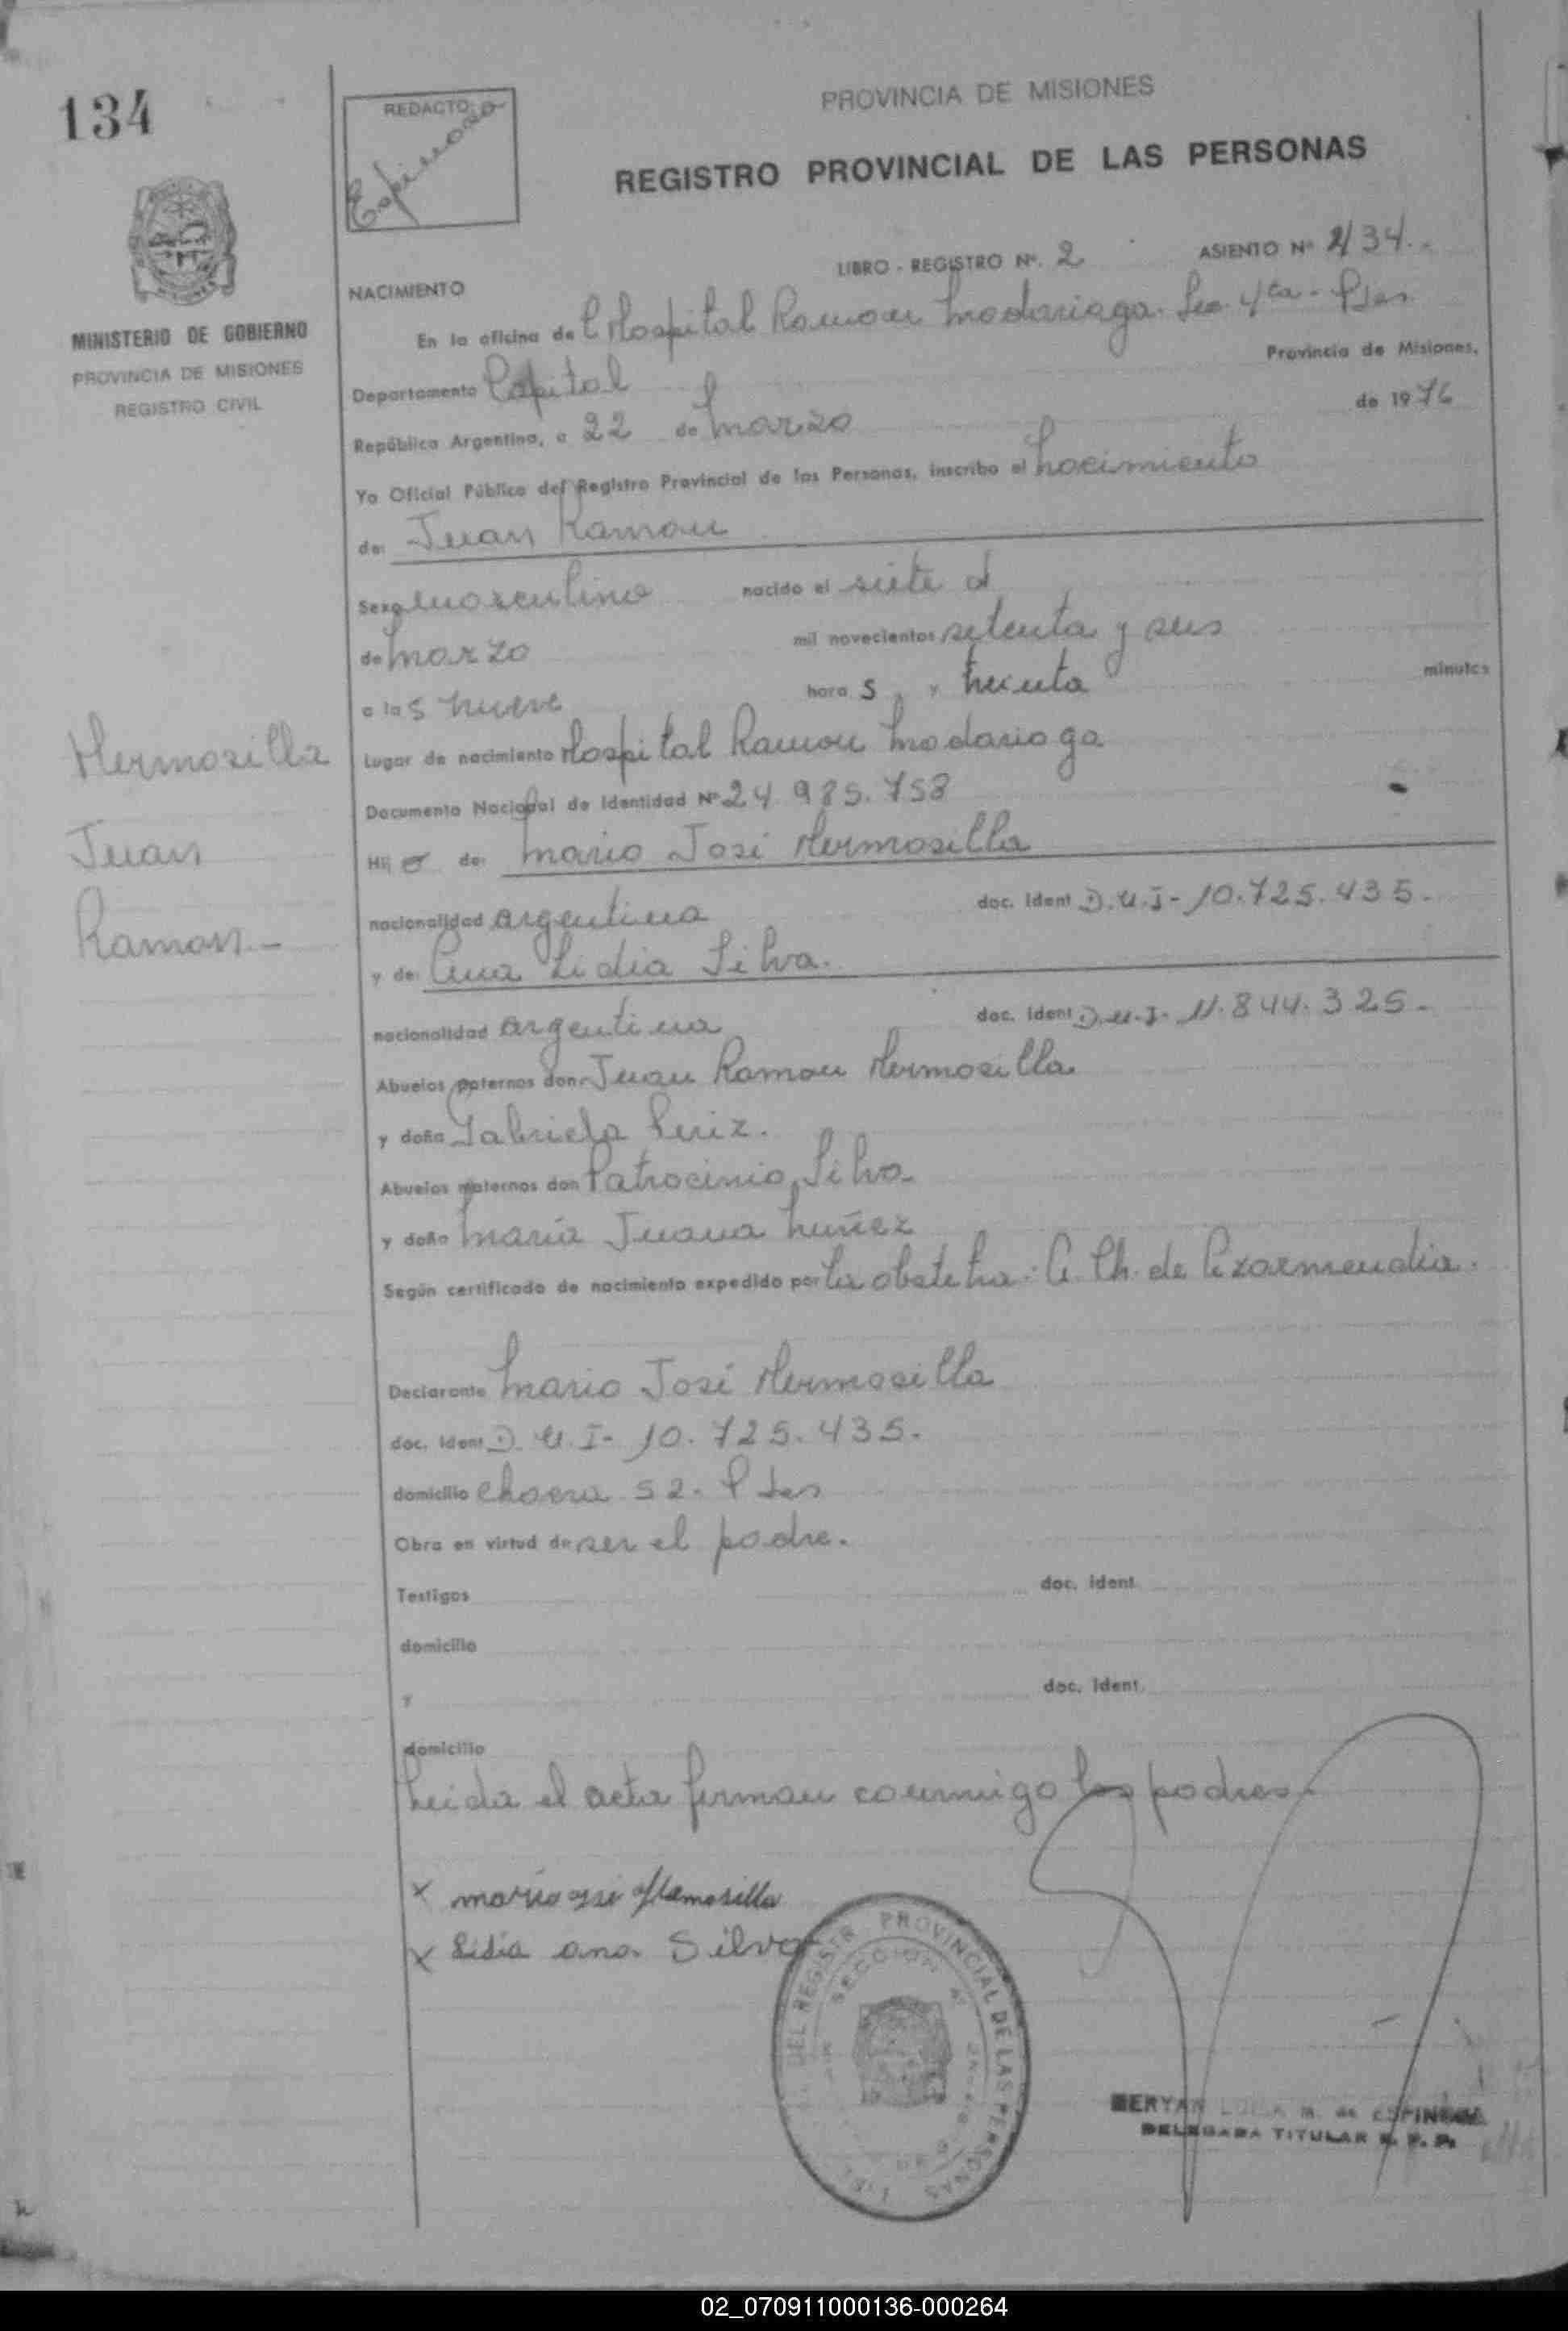 134
REDACTO:
Espinosa
PROVINCIA DE MISIONES
REGISTRO PROVINCIAL DE LAS PERSONAS
MINISTERIO DE GOBIERNO
PROVINCIA DE MISIONES
REGISTRO CIVIL
LIBRO - REGISTRO Nº. 2 ASIENTO Nº 134.
NACIMIENTO
En la oficina de Hospital Ramon Madariaga. Sec. 4ta - Pdas
Departamento Capital Provincia de Misiones,
República Argentina, a 22 de Marzo de 1976
Yo Oficial Público del Registro Provincial de las Personas, inscribo el nacimiento
de: Juan Ramon
Sexo masculino nacido el siete
de Marzo mil novecientos setenta y seis
a las nueve hora s y treinta minutos
Lugar de nacimiento Hospital Ramon Madariaga
Documento Nacional de Identidad Nº 24.985.758
Hij o de: Mario José Hermosilla
nacionalidad argentina doc. ident D.U.I- 10.725.435.
y de: Ana Lidia Silva.
nacionalidad argentina doc. ident D.U.I- 11.844.325.
Abuelos paternos don Juan Ramon Hermosilla
y doña Gabriela
Abuelos maternos don Patrocinio Silva
y doña María Juana Nuñez
Según certificado de nacimiento expedido por La obstetra: C. Ch. de
Declarante Mario José Hermosilla
doc. ident D.U.I- 10.725.435.
domicilio chacra 52. Pdas
Obra en virtud de ser el padre.
Testigos doc. ident.
domicilio
y doc. ident.
domicilio
Leida el acta firman conmigo los padres.
Hermosilla
Juan
Ramon -
x mario jose Hermosilla
x Lidia ana Silva
DEL REGISTR PROVINCIAL DE LAS PERSONAS
SECCION 4ª
DELEGADA TITULAR R. P. P.
02_070911000136-000264